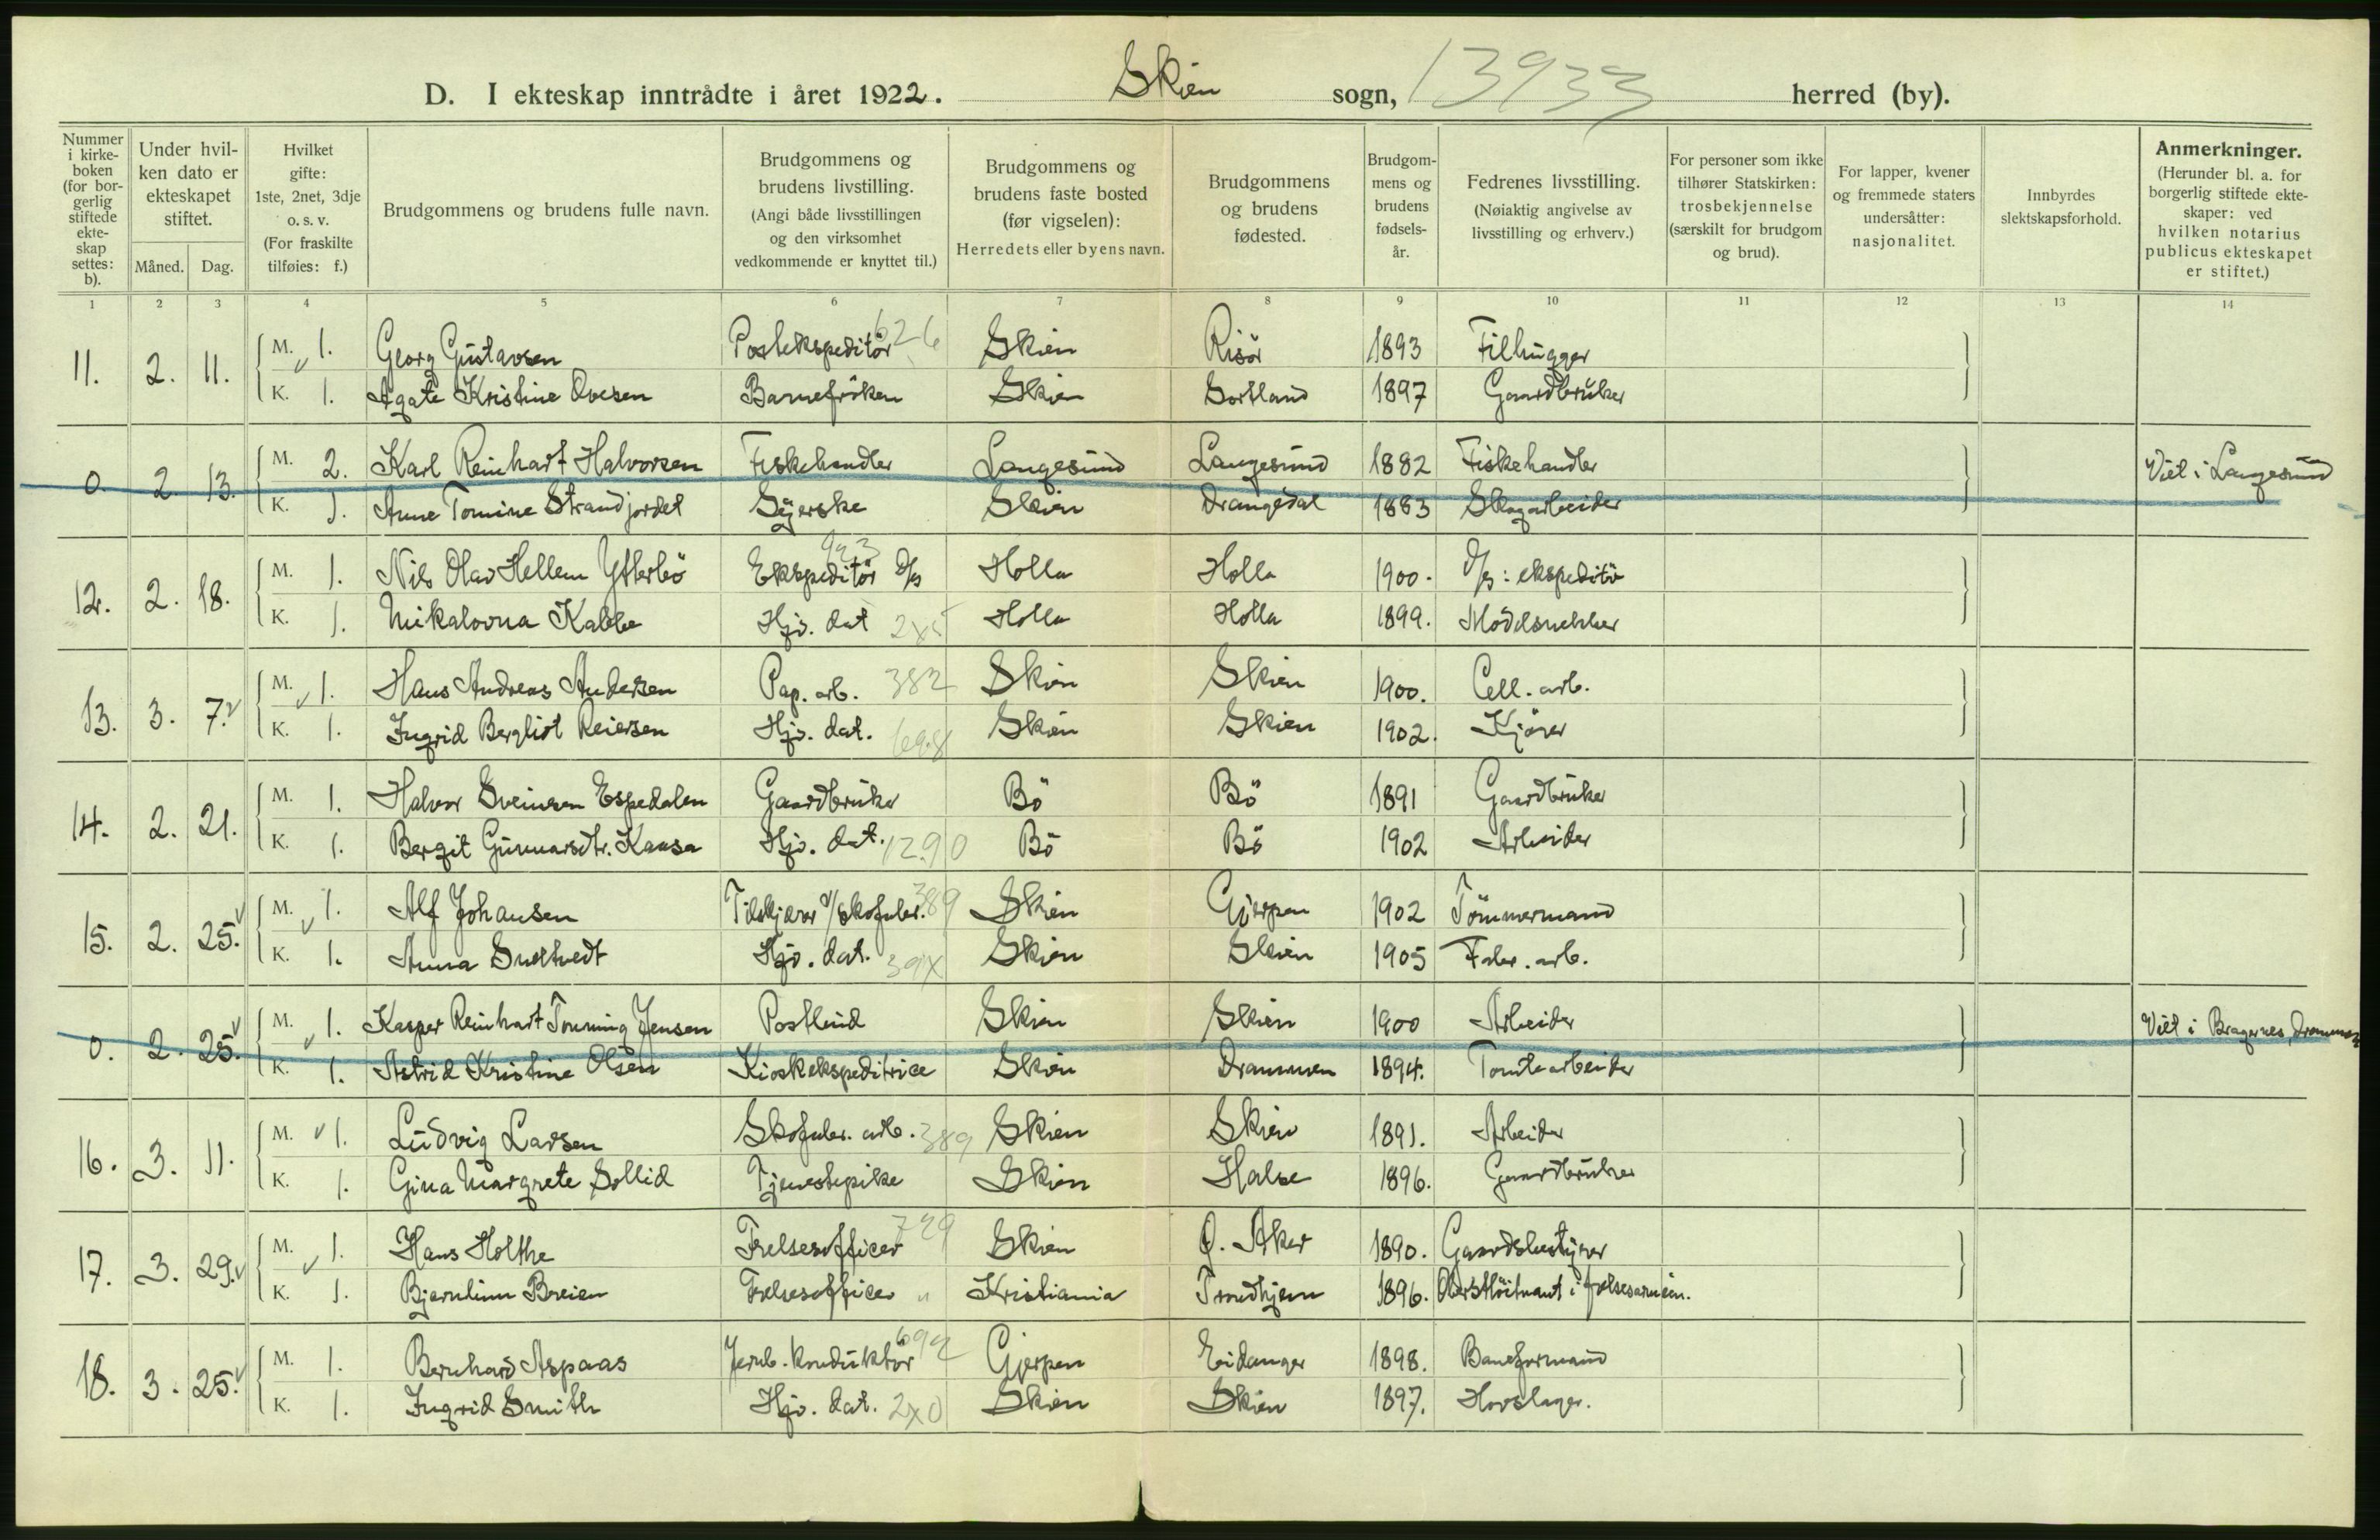 D. I ekteskap inntrådte i året 1922. Skien sogn, 13933 herred (by).
Nummer i kirkeboken (for borgerlig stiftede ekteskap settes: b).
Under hvilken dato er ekteskapet stiftet.
Måned. Dag.
Hvilket gifte: 1ste, 2net, 3dje o. s. v. (For fraskilte tilføies: f.)
Brudgommens og brudens fulle navn.
Brudgommens og brudens livstilling. (Angi både livsstillingen og den virksomhet vedkommende er knyttet til.)
Brudgommens og brudens faste bosted (før vigselen): Herredets eller byens navn.
Brudgommens og brudens fødested.
Brudgommens og brudens fødselsår.
Fedrenes livsstilling. (Nøiaktig angivelse av livsstilling og erhverv.)
For personer som ikke tilhører Statskirken: trosbekjennelse (særskilt for brudgom og brud).
For lapper, kvener og fremmede staters undersåtter: nasjonalitet.
Innbyrdes slektskapsforhold.
Anmerkninger. (Herunder bl. a. for borgerlig stiftede ekteskaper: ved hvilken notarius publicus ekteskapet er stiftet.)
1 2 3 4 5 6 7 8 9 10 11 12 13 14
11. 2. 11. M. 1. Georg Gustavsen Postekspeditör 626 Skien Risör 1893 Filhugger
K. 1. Agate Kristine Ovesen Barnefröken Skien Sortland 1897 Gaardbruker
0. 2. 13. M. 2. Karl Reinhart Halvorsen Fiskehandler Langesund Langesund 1882 Fiskehandler Viet i Langesund
K. 1. Anne Tomine Strandjordet Syerske Skien Drangedal 1883 Skogarbeider
12. 2. 18. M. 1. Nils Olav Hellem Ytterbö Ekspeditör D/s Holla Holla 1900. D/s: ekspeditör
K. 1. Mikalovna Kabbe Hjv. dat Holla Holla 1899. Modelsnekker
13. 3. 7. M. 1. Hans Andreas Andersen Pap. arb. 382 Skien Skien 1900. Cell. arb.
K. 1. Ingrid Bergliot Reiersen Hjv. dat. 698 Skien Skien 1902. Kjörer
14. 2. 21. M. 1. Halvor Sveinsen Espedalen Gaardbruker Bö Bö 1891 Gaardbruker
K. 1. Bergit Gunnarsdtr. Kaasa Hjv. dat. 1290 Bö Bö 1902 Arbeider
15. 2. 25. M. 1. Alf Johansen Tilskjærer v/skofabr. 389 Skien Gjerpen 1902 Tömmermand
K. 1. Anna Sneltvedt Hjv. dat. Skien Skien 1905 Fabr. arb.
0. 2. 25. M. 1. Kasper Reinhart Tonning Jensen Postbud Skien Skien 1900 Arbeider Viet i Bragernes, Drammen
K. 1. Astrid Kristine Olsen Kioskekspeditrice Skien Drammen 1894. Tomtearbeider
16. 3. 11. M. 1. Ludvig Larsen Skofabr. arb. 389 Skien Skien 1891. Arbeider
K. 1. Gina Margrete Sollid Tjenestepike Skien Halse 1896. Gaardbruker
17. 3. 29. M. 1. Hans Holthe Frelsesofficer 729 Skien Ø. Aker 1890. Gaardsbestyrer
K. 1. Bjernlinn Breien Frelsesofficer " Kristiania Trondhjem 1896. Oberstlöitnant i frelsesarmeen.
18. 3. 25. M. 1. Bernhard Aspaas Jernb. konduktör 692 Gjerpen Eidanger 1898. Baneformand
K. 1. Ingrid Smith Hjv. dat. 2x0 Skien Skien 1897. Hovslager.